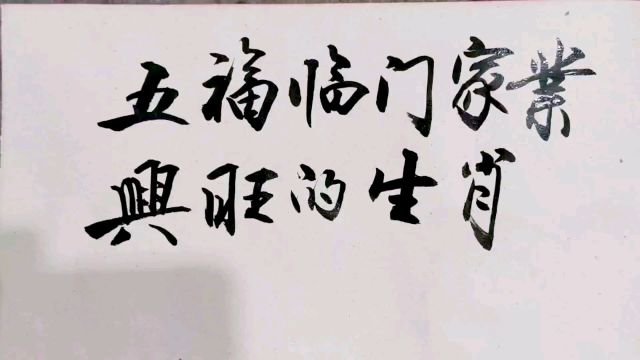 五福临门家業
興旺的生肖